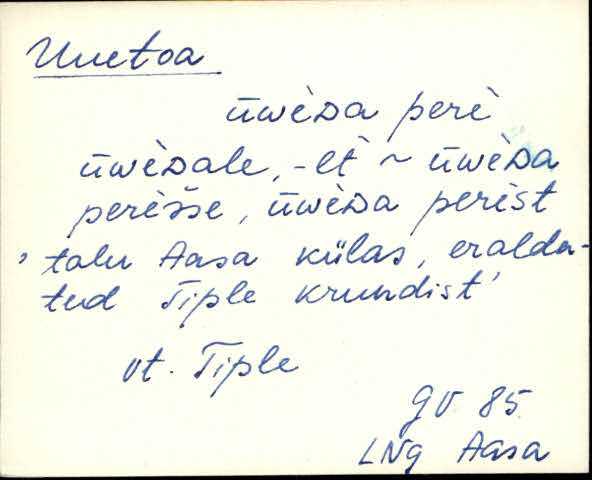 Uuetoa
ūwèᴅa perè
ūwèᴅale, -lt̀ ~ ūwèᴅa
perèšše, ūwèᴅa perèst
'talu Aasa külas, eralda-
tud Tiple krundist'
vt. Tiple
GV 85
LNg Aasa